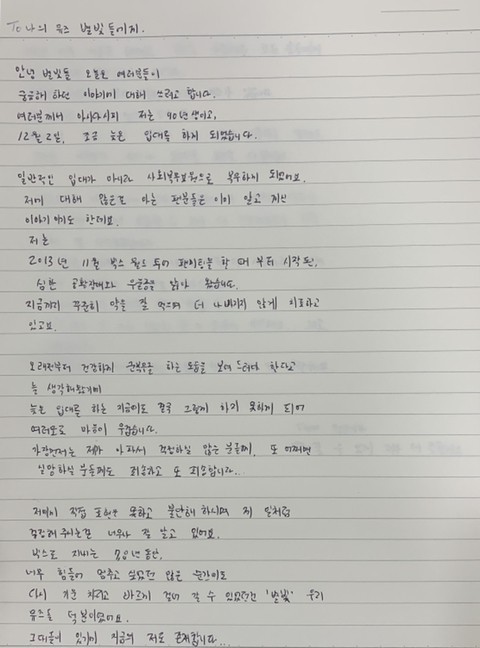 To 나의 묙즈 별빛들에게.
안녕 별빛들 오늘은 여러분들이
궁금해 하던 이야기에 대해 쓰려고 합니다.
여러분께서 아시다시피 저는 90년생이고,
12월 2일, 조금 늦은 입대를 하게 되었습니다.
일반적인 입대가 아니라 사회복무요원으로 복무하게 되었어요.
저에 대해 많은걸 아는 팬분들은 이미 알고 계신
이야기 이기도 한데요.
저는
2013년 11월 빅스 월드 투어 판타지를 할 때 부터 시작된,
심한 공황장애와 우울증을 앓아 왔습니다.
지금까지 꾸준히 약을 잘 먹으며 더 나빠지지 않게 치료하고
있고요.
오래전부터 건강하게 군복무를 하는 모습을 보여 드려야 한다고
늘 생각해왔기에
늦은 입대를 하는 지금에도 결국 그렇게 하지 못하게 되어
여러모로 마음이 무겁습니다.
가장먼저는 제가 아파서 걱정하실 많은 분들께, 또 어쩌면
실망하실 분들께도 죄송하고 또 죄송합니다...
저에게 직접 표현은 못하고 불안해 하시며 제 일처럼
걱정해 주시는걸 너무나 잘 알고 있어요.
빅스로 지내는 동안,
너무 힘들어 멈추고 싶었던 많은 순간에도
다시 기운 차리고 바르게 걸어 갈 수 있었던건 '별빛' 우리
묙즈들 덕분이었어요.
그대들이 있기에 지금의 저도 존재합니다...